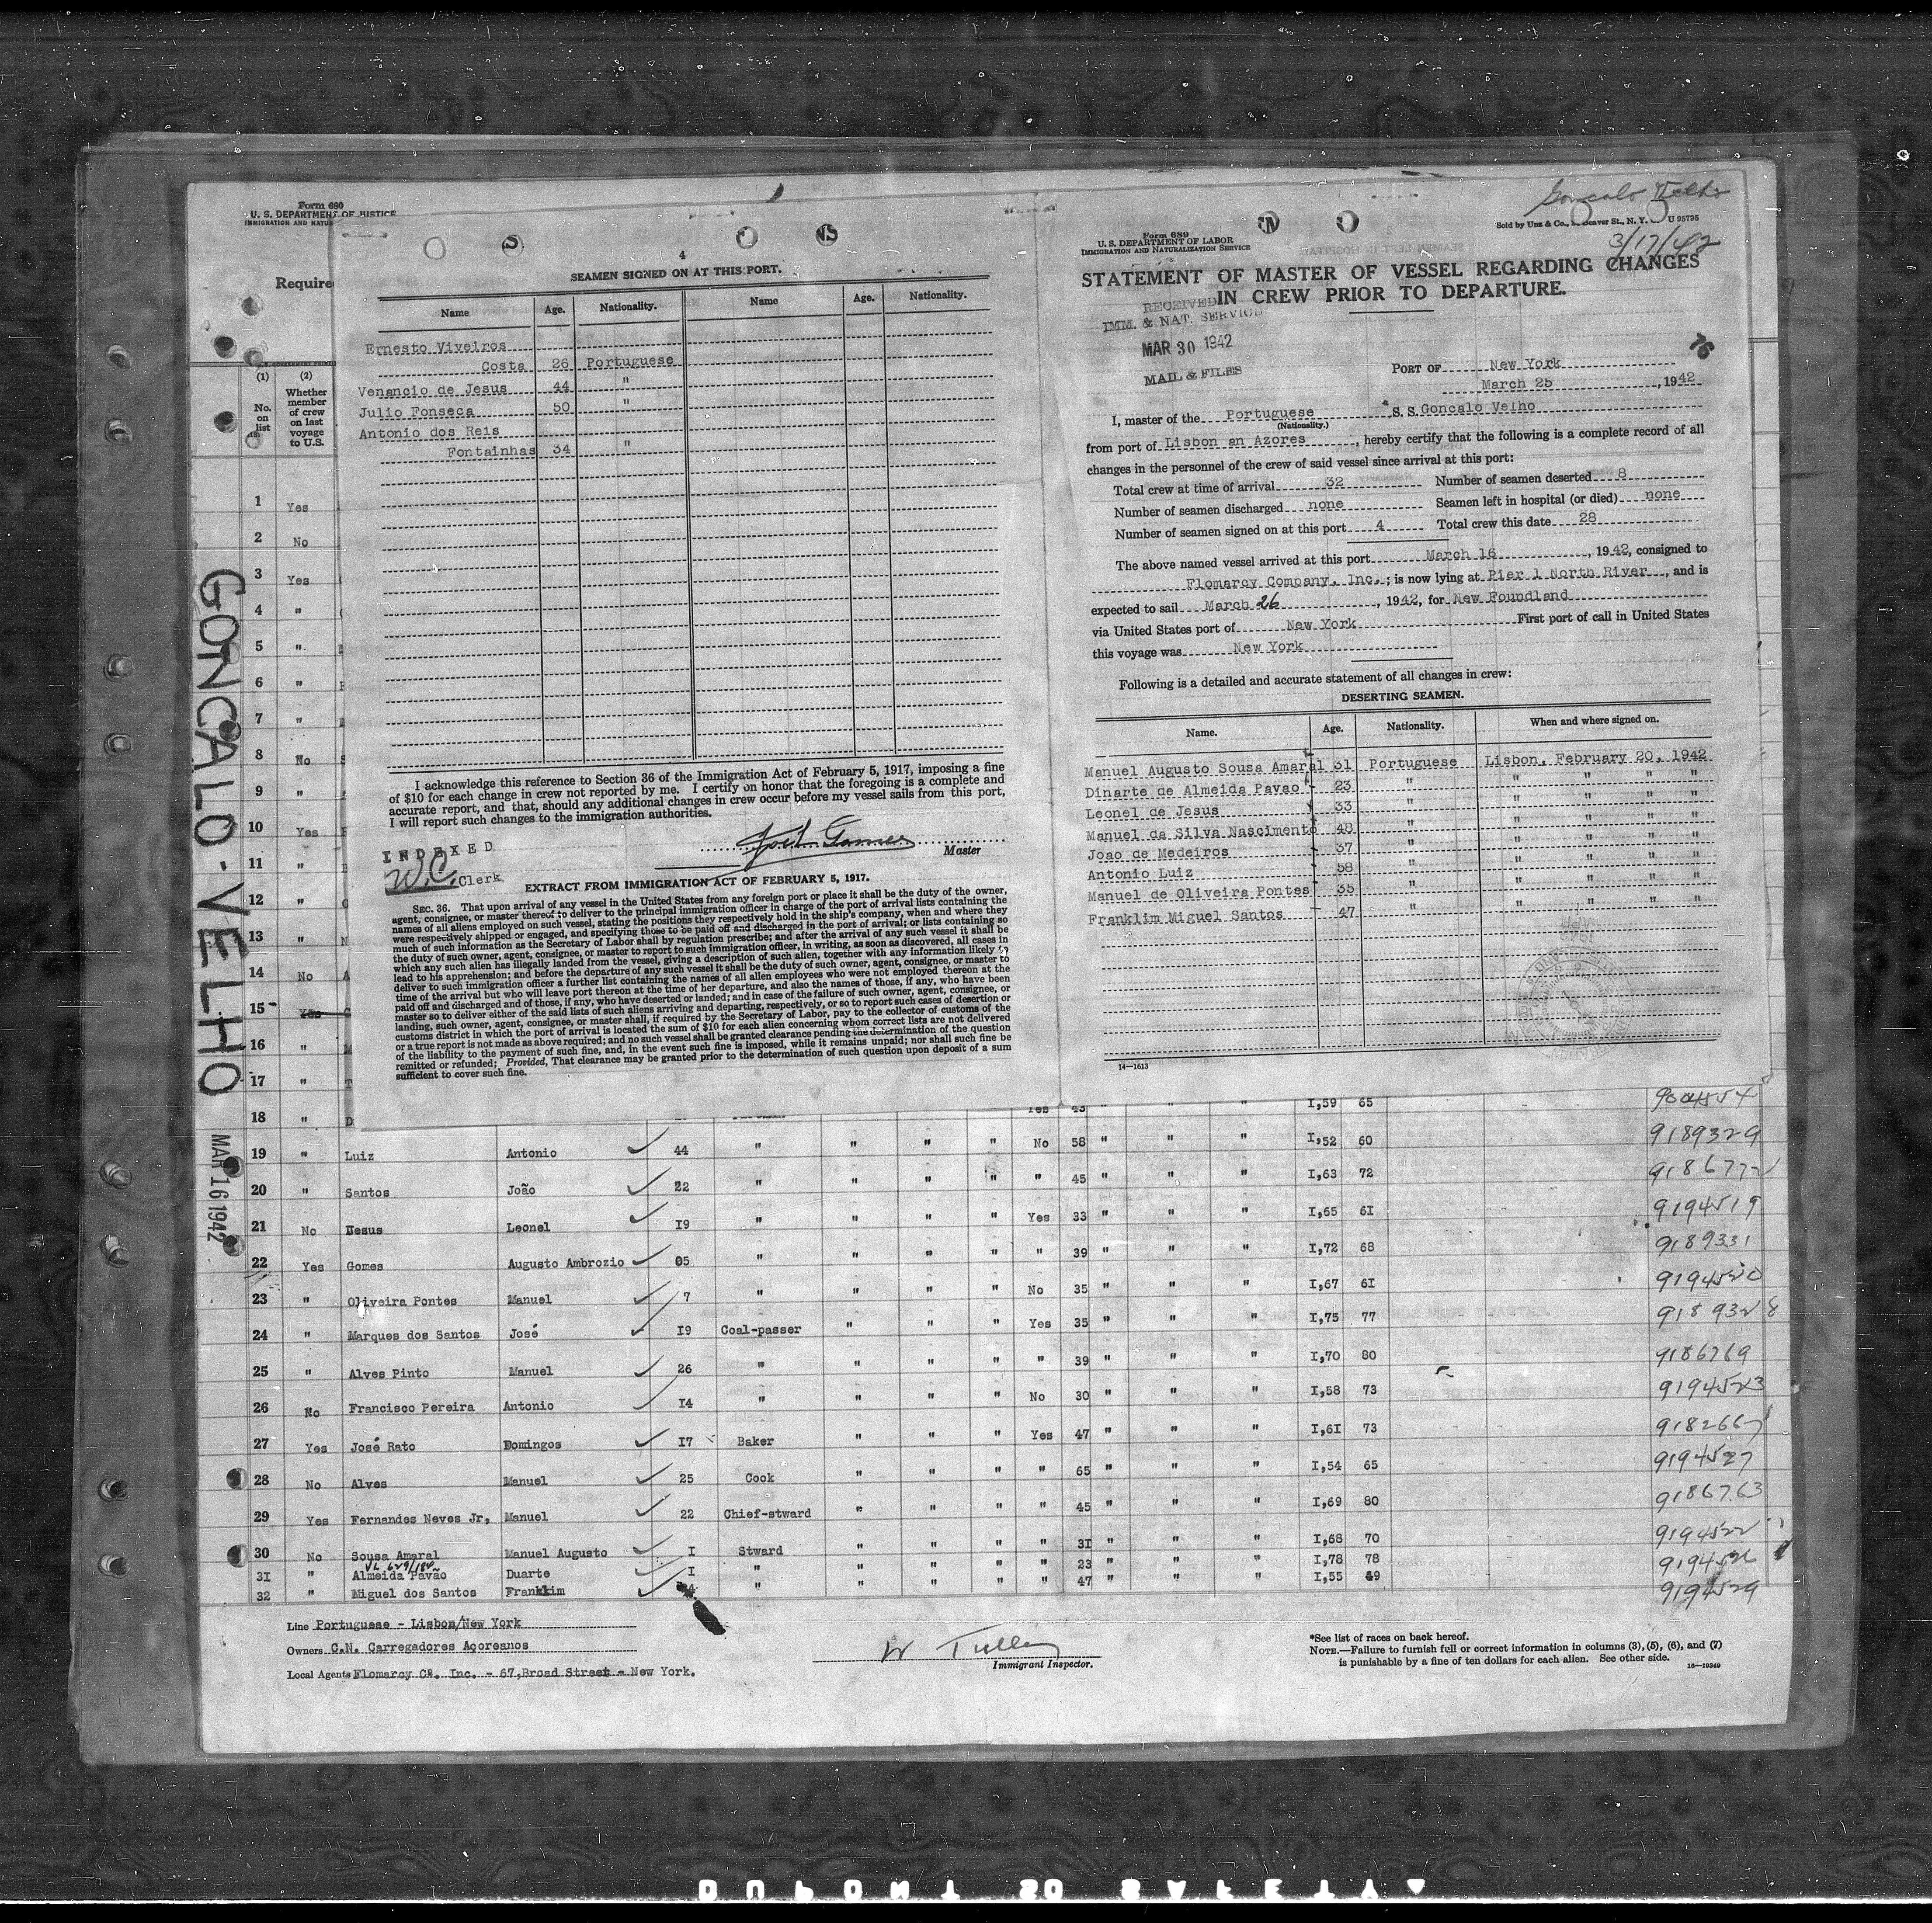 Form 680
U. S. DEPARTMENT OF JUSTICE
IMMIGRATION AND NATUR
Require
(1)
No. on list
(2)
Whether member of crew on last voyage to U.S.
1 Yes
2 No
3 Yes
4 "
5 "
6 "
7 "
8 No
9 "
10 Yes
11 "
12 "
13 "
14 No
15 Yes
16 "
17 "
18 "
GONCALO-VELHO
MAR 16 1942
4
SEAMEN SIGNED ON AT THIS PORT.
Name Age. Nationality. Name Age. Nationality.
Ernesto Viveiros
Costa 26 Portuguese
Venancio de Jesus 44 "
Julio Fonseca 50 "
Antonio dos Reis
Fontainhas 34 "
I acknowledge this reference to Section 36 of the Immigration Act of February 5, 1917, imposing a fine
of $10 for each change in crew not reported by me. I certify on honor that the foregoing is a complete and
accurate report, and that, should any additional changes in crew occur before my vessel sails from this port,
I will report such changes to the immigration authorities.
INDEXED
W.C. Clerk
Master
EXTRACT FROM IMMIGRATION ACT OF FEBRUARY 5, 1917.
SEC. 36. That upon arrival of any vessel in the United States from any foreign port or place it shall be the duty of the owner,
agent, consignee, or master thereof to deliver to the principal immigration officer in charge of the port of arrival lists containing the
names of all aliens employed on such vessel, stating the positions they respectively hold in the ship's company, when and where they
were respectively shipped or engaged, and specifying those to be paid off and discharged in the port of arrival; or lists containing so
much of such information as the Secretary of Labor shall by regulation prescribe; and after the arrival of any such vessel it shall be
the duty of such owner, agent, consignee, or master to report to such immigration officer, in writing, as soon as discovered, all cases in
which any such alien has illegally landed from the vessel, giving a description of such alien, together with any information likely to
lead to his apprehension; and before the departure of any such vessel it shall be the duty of such owner, agent, consignee, or master to
deliver to such immigration officer a further list containing the names of all alien employees who were not employed thereon at the
time of the arrival but who will leave port thereon at the time of her departure, and also the names of those, if any, who have been
paid off and discharged and of those, if any, who have deserted or landed; and in case of the failure of such owner, agent, consignee, or
master so to deliver either of the said lists of such aliens arriving and departing, respectively, or so to report such cases of desertion or
landing, such owner, agent, consignee, or master shall, if required by the Secretary of Labor, pay to the collector of customs of the
customs district in which the port of arrival is located the sum of $10 for each alien concerning whom correct lists are not delivered
or a true report is not made as above required; and no such vessel shall be granted clearance pending the determination of the question
of the liability to the payment of such fine, and, in the event such fine is imposed, while it remains unpaid; nor shall such fine be
remitted or refunded; Provided, That clearance may be granted prior to the determination of such question upon deposit of a sum
sufficient to cover such fine.
Goncalo Velho
Form 689
U. S. DEPARTMENT OF LABOR
IMMIGRATION AND NATURALIZATION SERVICE
Sold by Unz & Co., Beaver St., N. Y. U 95795
3/17/42
STATEMENT OF MASTER OF VESSEL REGARDING CHANGES
IN CREW PRIOR TO DEPARTURE.
RECEIVED
IMM. & NAT. SERVICE
MAR 30 1942
MAIL & FILES
76
PORT OF New York
March 25, 1942
I, master of the Portuguese S. S. Goncalo Velho
(Nationality.)
from port of Lisbon an Azores, hereby certify that the following is a complete record of all
changes in the personnel of the crew of said vessel since arrival at this port:
Total crew at time of arrival 32 Number of seamen deserted 8
Number of seamen discharged none Seamen left in hospital (or died) none
Number of seamen signed on at this port 4 Total crew this date 28
The above named vessel arrived at this port March 16, 1942, consigned to
Flomarcy Company, Inc.; is now lying at Pier 1 North River, and is
expected to sail March 26, 1942, for New Foundland
via United States port of New York First port of call in United States
this voyage was New York
Following is a detailed and accurate statement of all changes in crew:
DESERTING SEAMEN.
Name. Age. Nationality. When and where signed on.
Manuel Augusto Sousa Amaral 31 Portuguese Lisbon, February 20, 1942
Dinarte de Almeida Pavao 23 " " " " "
Leonel de Jesus 33 " " " " "
Manuel da Silva Nascimento 40 " " " " "
Joao de Medeiros 37 " " " " "
Antonio Luiz 58 " " " " "
Manuel de Oliveira Pontes 35 " " " " "
Franklim Miguel Santos 47 " " " " "
14—1613
Yes 43 " " " I,59 65
19 " Luiz Antonio 44 " " " " No 58 " " " I,52 60 9189329
20 " Santos João 22 " " " " " 45 " " " I,63 72 9186772
21 No Jesus Leonel I9 " " " " Yes 33 " " " I,65 6I 9194519
22 Yes Gomes Augusto Ambrozio 05 " " " " " 39 " " " I,72 68 9189331
23 " Oliveira Pontes Manuel 7 " " " " No 35 " " " I,67 6I 9194520
24 " Marques dos Santos José I9 Coal-passer " " " Yes 35 " " " I,75 77 9189328
25 " Alves Pinto Manuel 26 " " " " " 39 " " " I,70 80 9186769
26 No Francisco Pereira Antonio I4 " " " " No 30 " " " I,58 73 9194523
27 Yes José Rato Domingos I7 Baker " " " Yes 47 " " " I,6I 73 9182667
28 No Alves Manuel 25 Cook " " " " 65 " " " I,54 65 9194527
29 Yes Fernandes Neves Jr, Manuel 22 Chief-stward " " " " 45 " " " I,69 80 9186763
30 No Sousa Amaral Manuel Augusto I Stward " " " " 3I " " " I,68 70 9194522
3I " Almeida Pavão Duarte I " " " " " 23 " " " I,78 78 9194526
32 " Miguel dos Santos Franklim " " " " " 47 " " " I,55 49 9194529
Line Portuguese - Lisbon/New York
Owners C.N. Carregadores Açoreanos
Local Agents Flomarcy Co. Inc. - 67,Broad Street - New York.
W Tulley
Immigrant Inspector.
*See list of races on back hereof.
NOTE.—Failure to furnish full or correct information in columns (3), (5), (6), and (7)
is punishable by a fine of ten dollars for each alien. See other side.
16—19349
DUPONT SAFETY